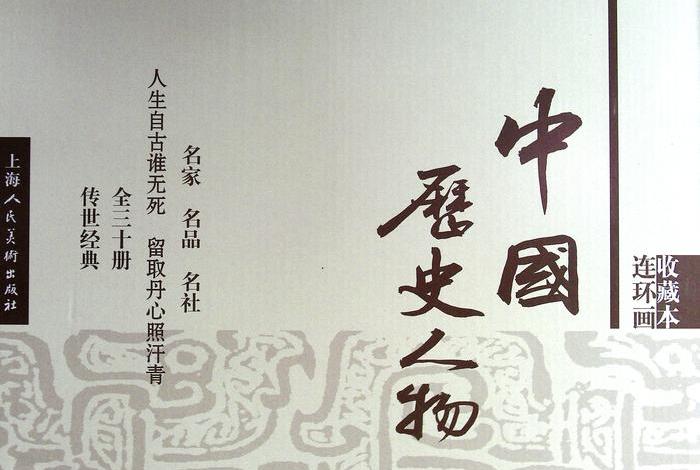 收藏本
连环画
中國
歷史人物
名家 名品 名社
人生自古谁无死 留取丹心照汗青
全三十册
传世经典
上海人民美術出版社